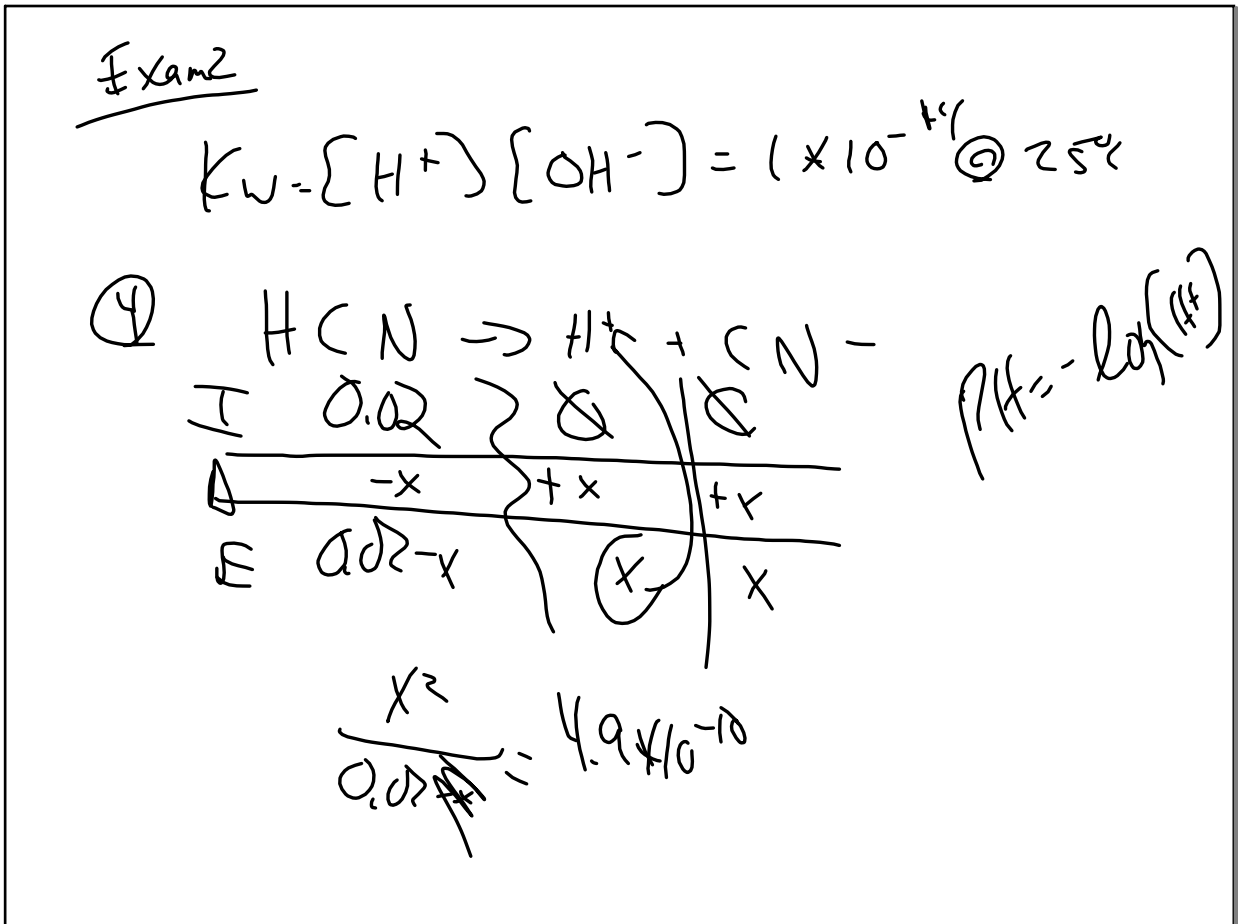 Exam2
Kw = [H+] [OH-] = 1 x 10^-14 @ 25°C
④ HCN → H+ + CN-
pH = -log(H+)
I 0.02 0 0
Δ -x +x +x
E 0.02-x x x
x²
0.02-x = 4.9x10^-10